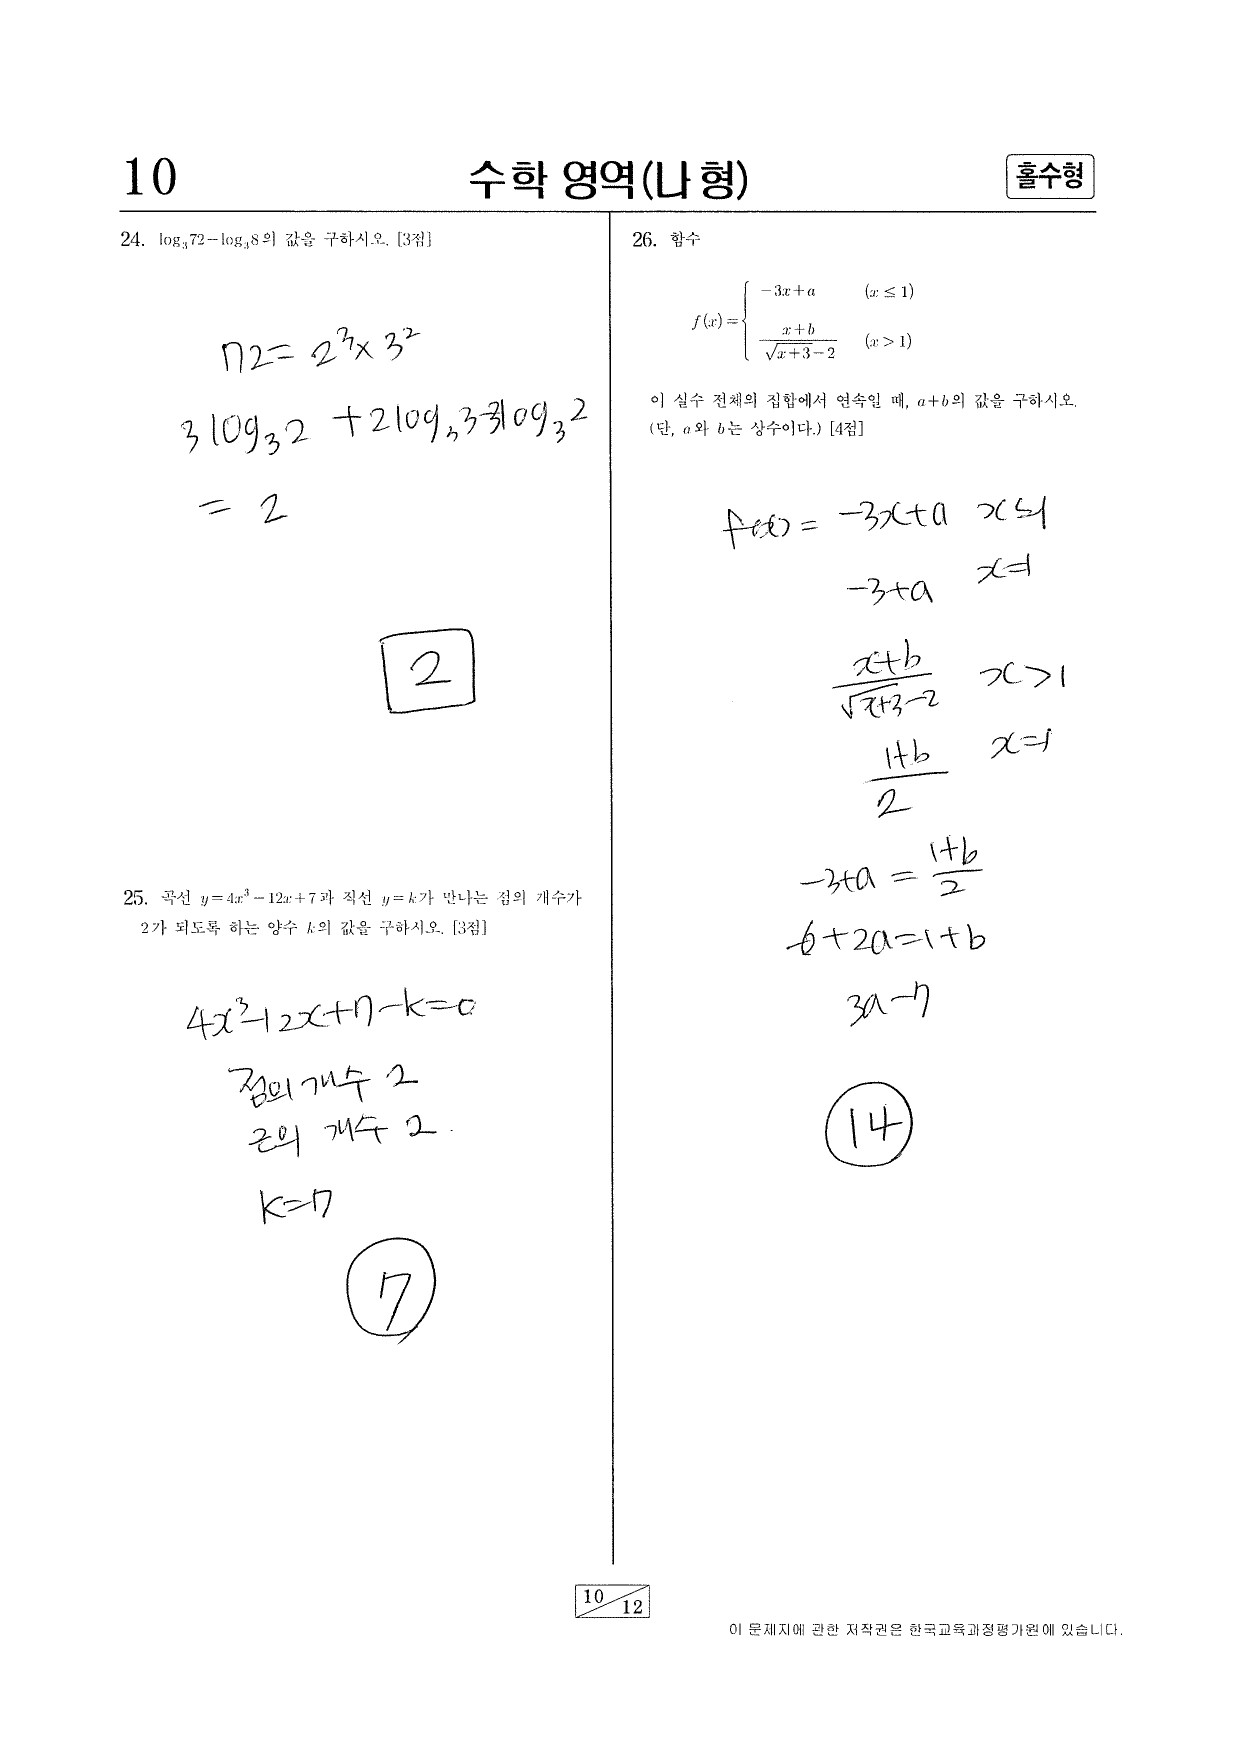 10
수학 영역(나형)
홀수형
24. log₃72-log₃8의 값을 구하시오. [3점]
72= 2³×3²
3log₃2 +2log₃3-3log₃2
= 2
2
25. 곡선 y=4x³-12x+7과 직선 y=k가 만나는 점의 개수가
2가 되도록 하는 양수 k의 값을 구하시오. [3점]
4x³-12x+7-k=0
점의 개수 2
근의 개수 2.
k=7
7
26. 함수
f(x)={ -3x+a (x≤1)
(x+b)/(√(x+3)-2) (x>1)
이 실수 전체의 집합에서 연속일 때, a+b의 값을 구하시오.
(단, a와 b는 상수이다.) [4점]
f(x)= -3x+a x≤1
-3+a x=1
(x+b)/(√(x+3)-2) x>1
(1+b)/2 x=1
-3+a = (1+b)/2
-6+2a=1+b
3a-7
14
10/12
이 문제지에 관한 저작권은 한국교육과정평가원에 있습니다.